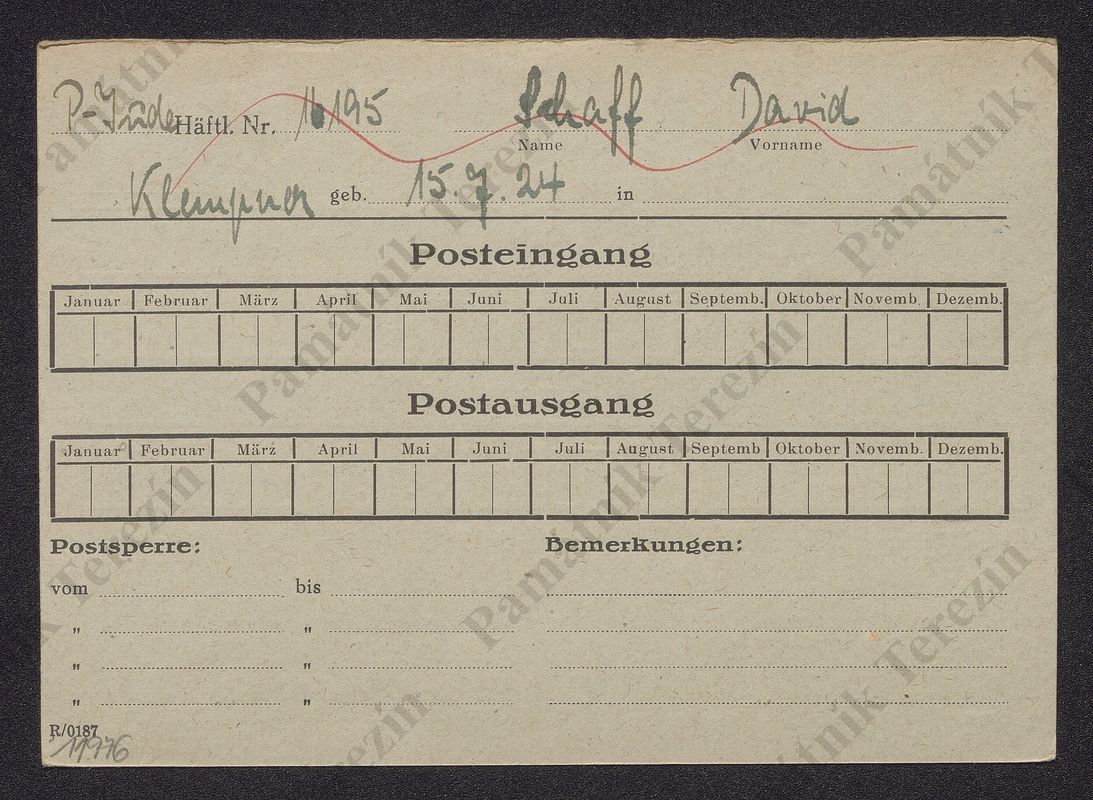 P-Jude Häftl. Nr. 16195 Schaff David
Name Vorname
Klempner geb. 15.7.24 in
Posteingang
Januar Februar März April Mai Juni Juli August Septemb. Oktober Novemb. Dezemb.
Postausgang
Januar Februar März April Mai Juni Juli August Septemb Oktober Novemb. Dezemb.
Postsperre: Bemerkungen:
vom bis
" "
" "
" "
R/0187
11976
Památník Terezín